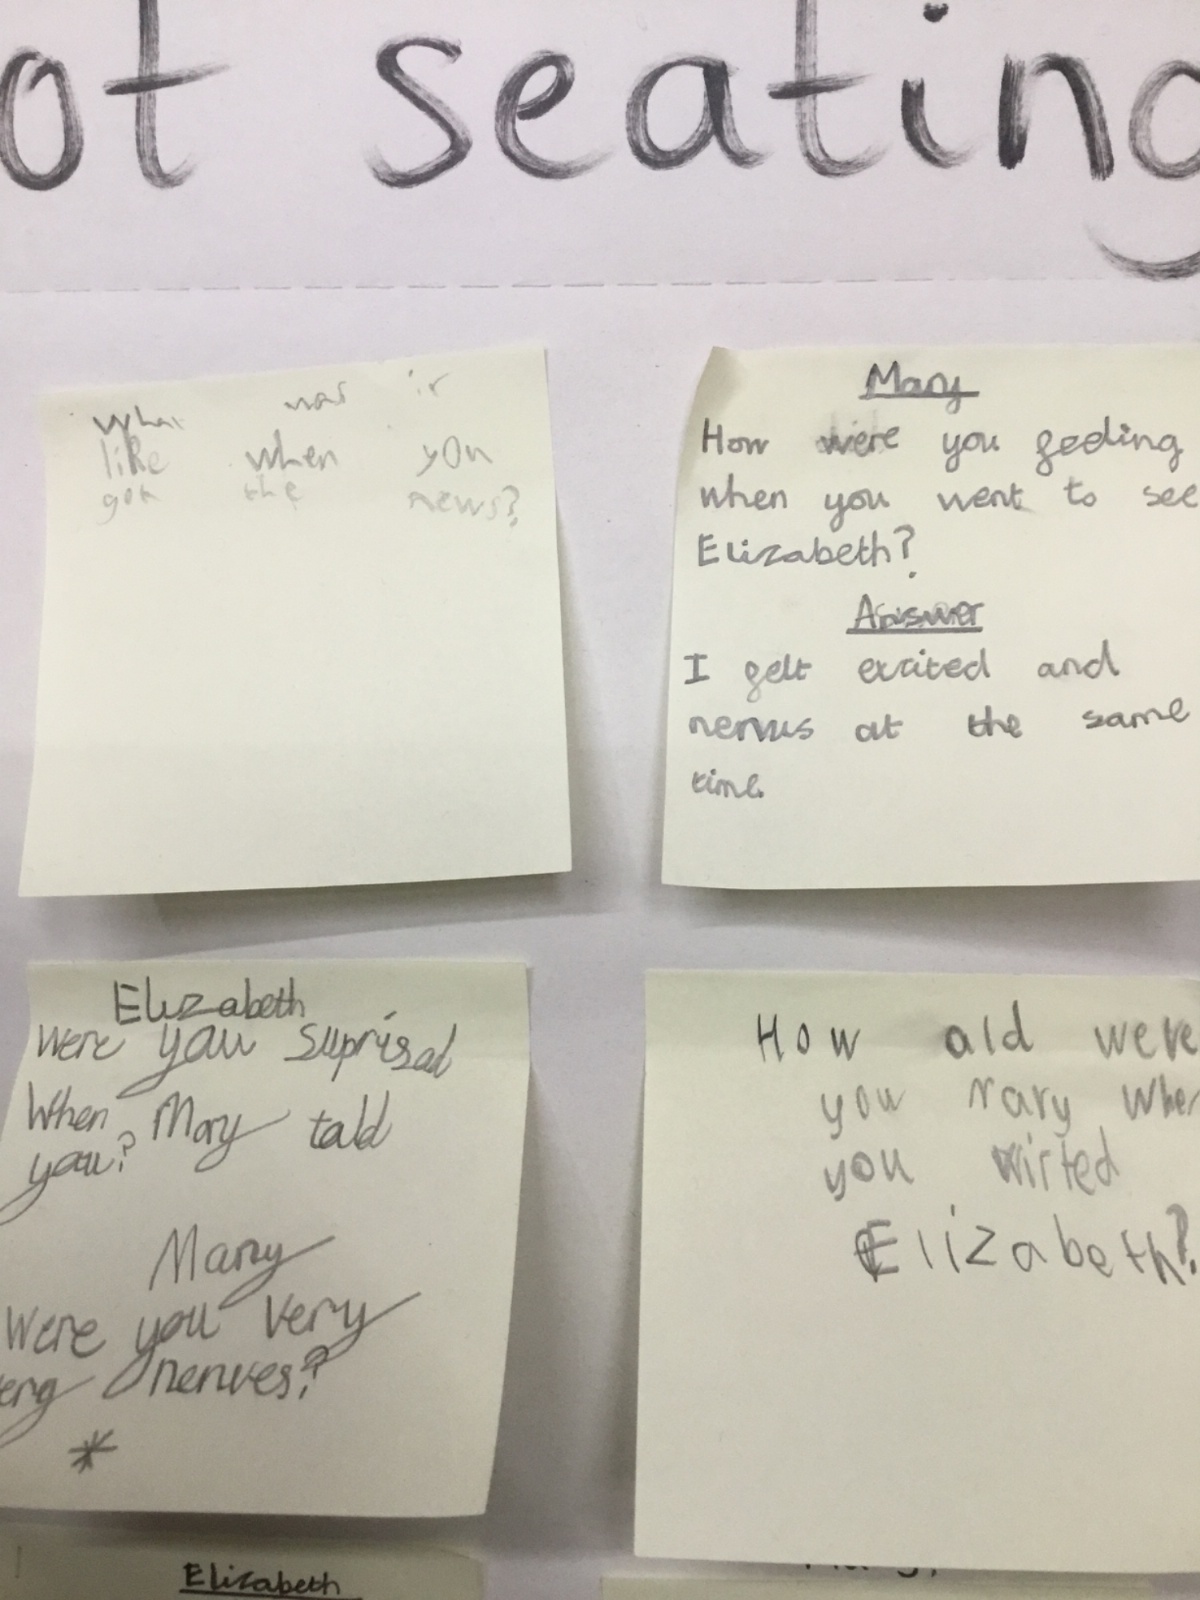 ot seating
What was it
like when you
got the news?
Mary
How were you feeling
when you went to see
Elizabeth?
Answer
I felt excited and
nervus at the same
time.
Elizabeth
Were you suprisad
When Mary told
you?
Mary
Were you very
very nerves?
*
How old were
you Mary when
you visited
Elizabeth?
Elizabeth